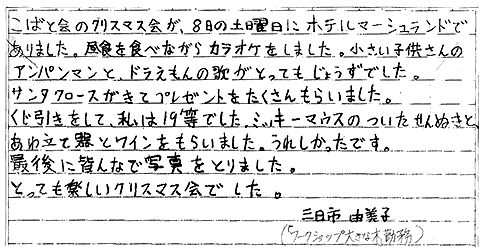 こばと会のクリスマス会が、8日の土曜日にホテルマーシュランドで
ありました。昼食を食べながらカラオケをしました。小さい子供さんの
アンパンマンと、ドラえもんの歌がとってもじょうずでした。
サンタクロースがきてプレゼントをたくさんもらいました。
くじ引きをして、私は19等でした。ミッキーマウスのついたせんぬきと、
あわ立て器とワインをもらいました。うれしかったです。
最後に皆んなで写真をとりました。
とっても楽しいクリスマス会でした。
三日市 由美子
(ワークショップ大きな木勤務)